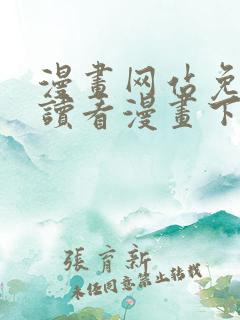 漫畫网佔免
讀者漫畫下
張育新
未经同意禁止转载